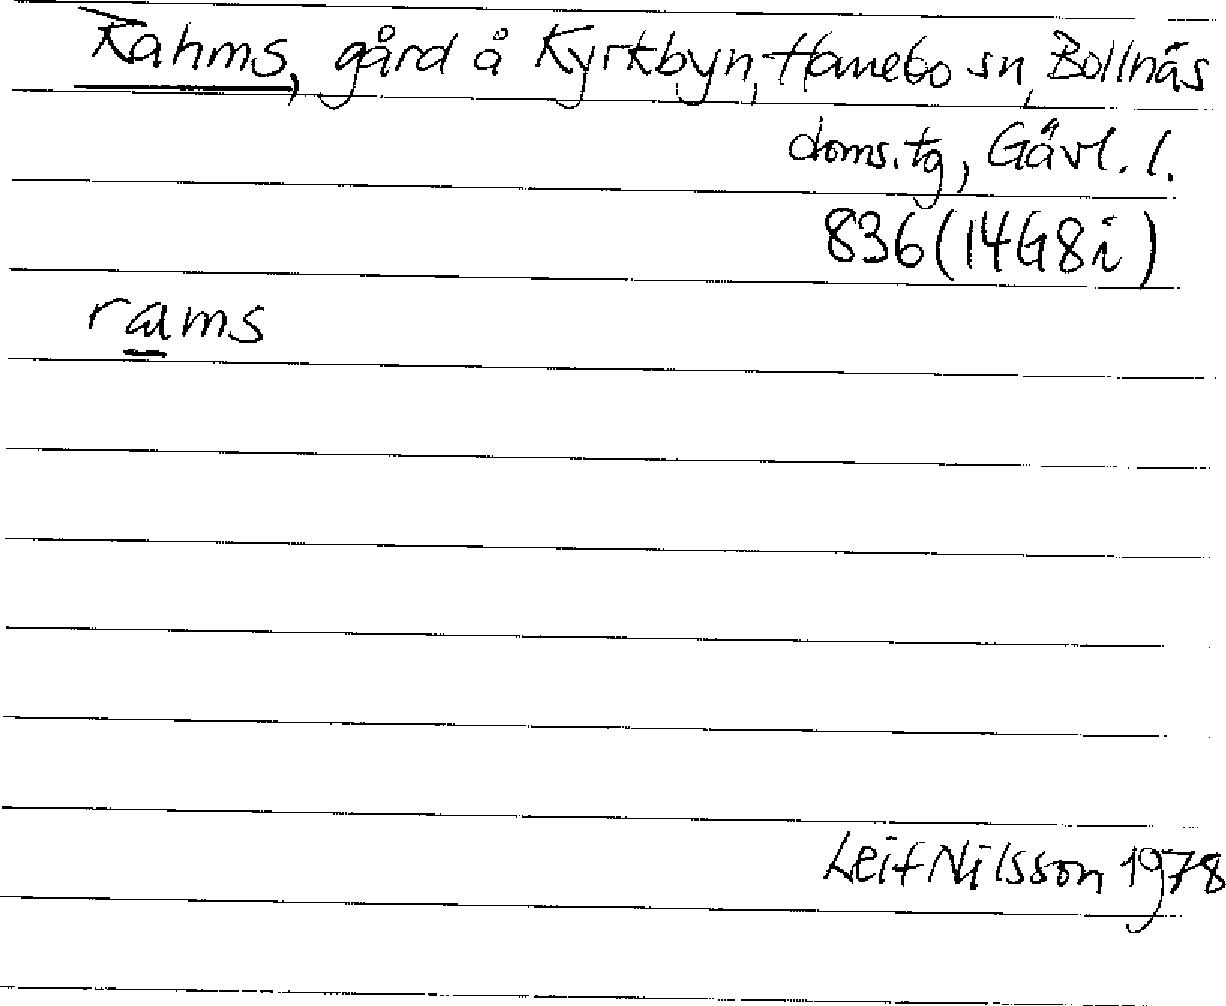 Rahms, gård å Kyrkbyn, Hanebo sn, Bollnäs
doms.tg, Gävl. l.
836 (14G8i)
rams
Leif Nilsson 1978